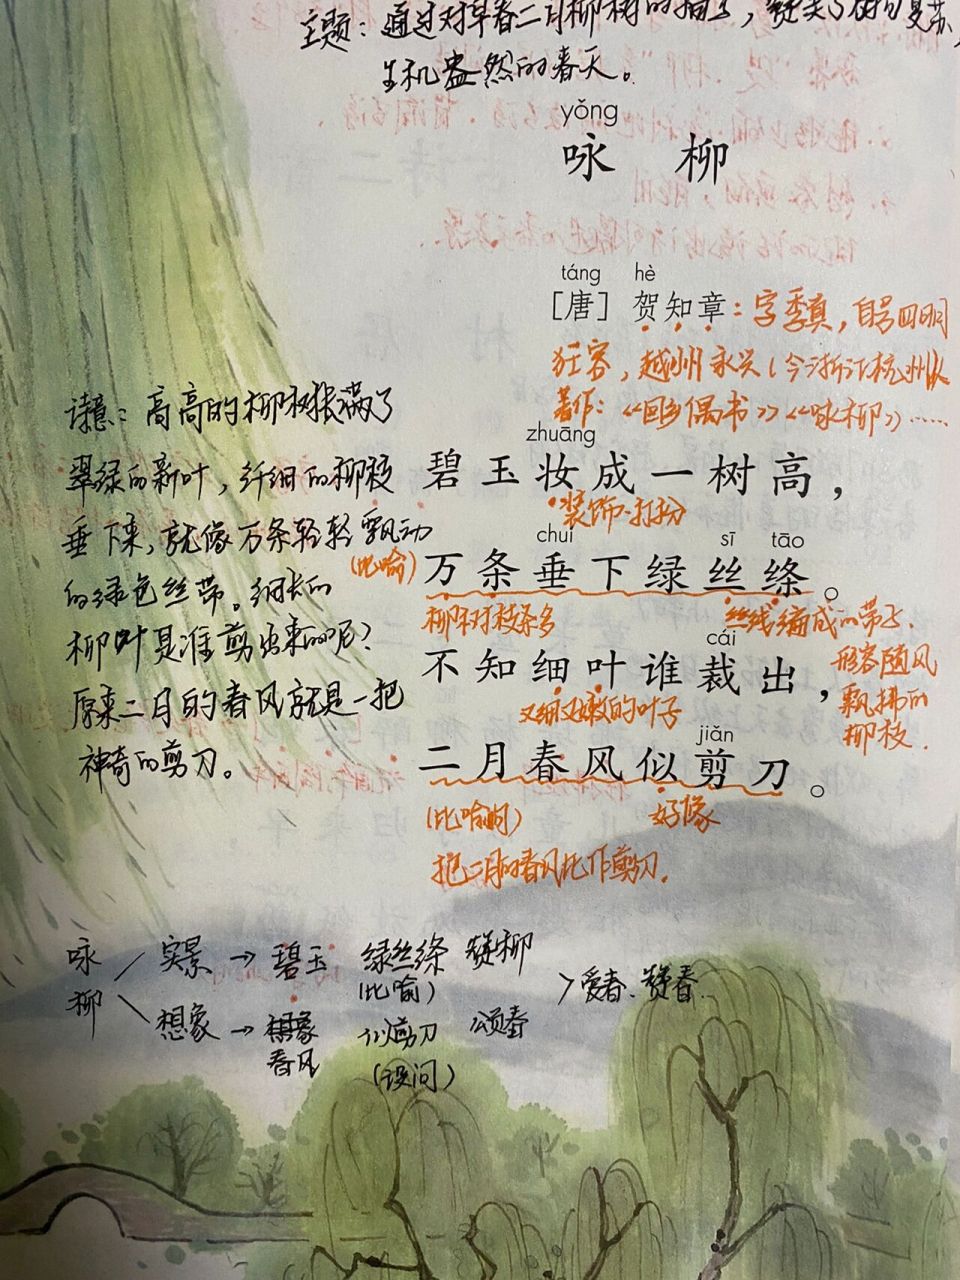 主题：通过对早春二月柳树的描写，赞美了
生机盎然的春天。
yǒng
咏 柳
táng hè
[唐] 贺知章：字季真，自号四明
狂客，越州永兴（今浙江杭州
著作：《回乡偶书》《咏柳》……
诗意：高高的柳树长满了
翠绿的新叶，纤细的柳枝
垂下来，就像万条轻轻飘动
的绿色丝带。细长的
柳叶是谁剪出来的呢？
原来二月的春风就是一把
神奇的剪刀。
zhuāng
碧玉妆成一树高，
装饰·打扮
chuí sī tāo
(比喻) 万条垂下绿丝绦。
柳树枝条多 丝线编成的带子.
形容随风
飘拂的
柳枝.
cái
不知细叶谁裁出，
又细又嫩的叶子
jiǎn
二月春风似剪刀。
(比喻句) 好像
把二月的春风比作剪刀.
咏柳
实景 → 碧玉 绿丝绦 赞柳
(比喻)
想象 → 春风 似剪刀 颂春
(设问)
> 爱春.赞春.